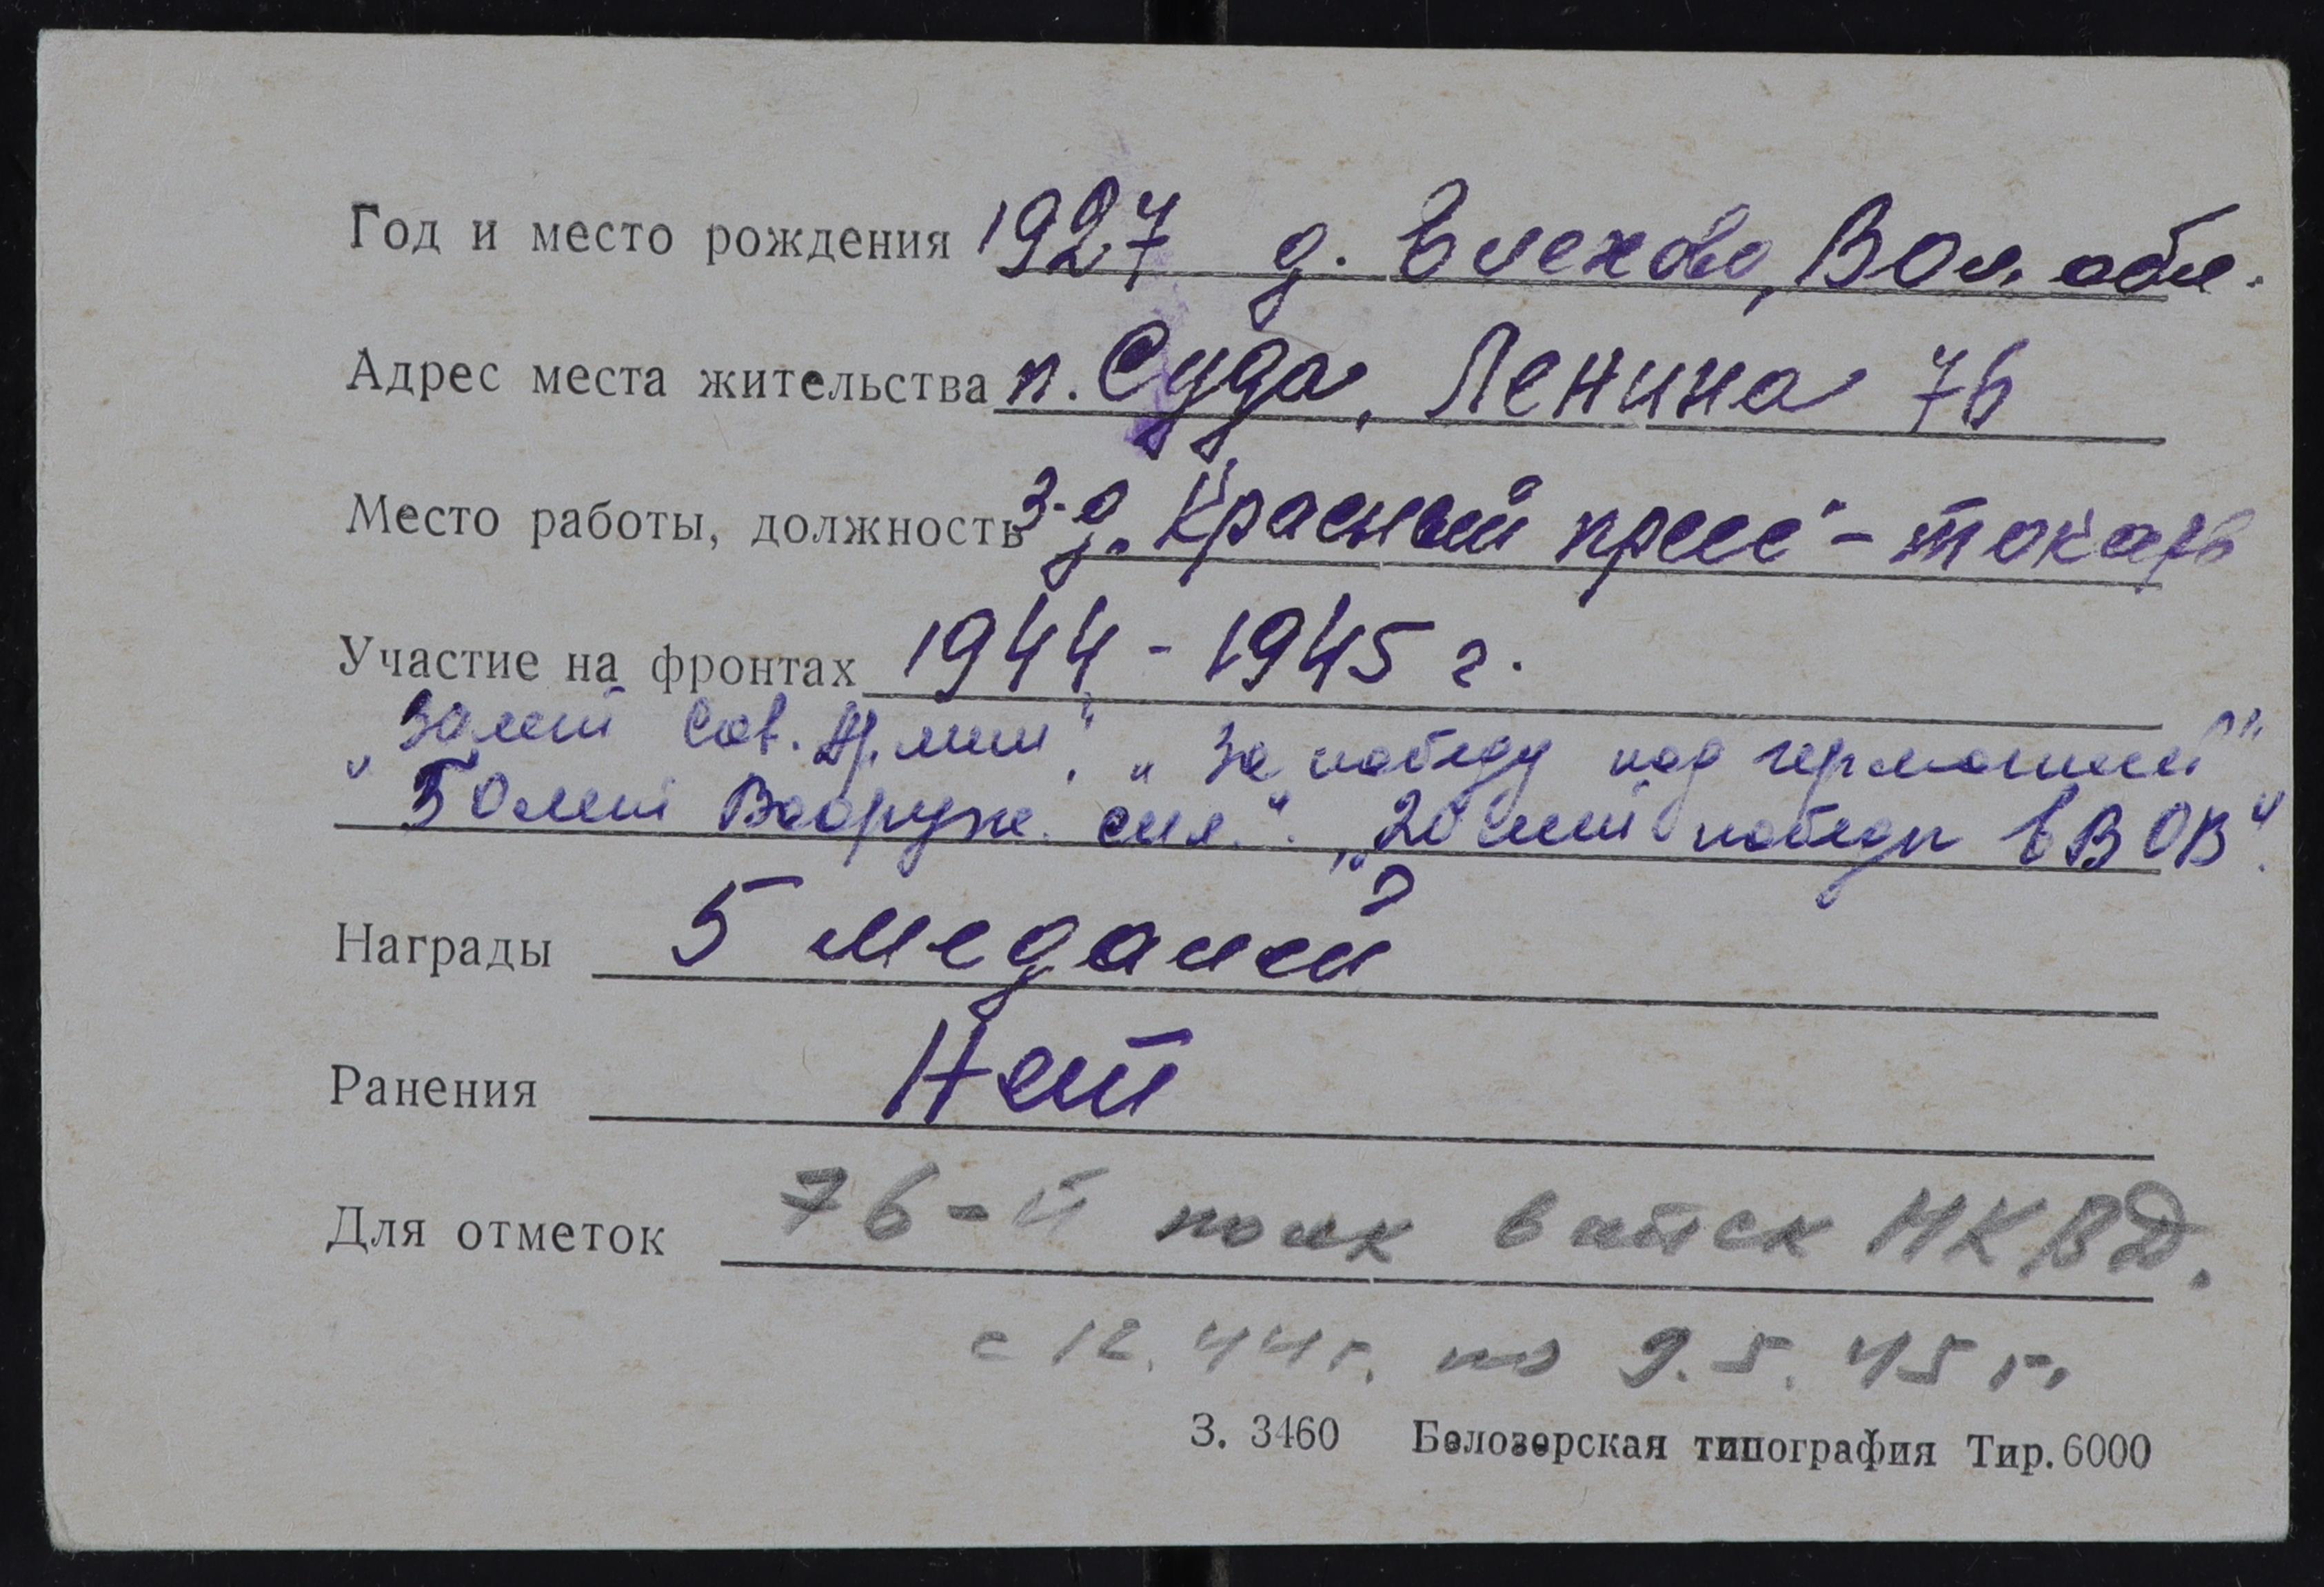 Год и место рождения 1927 д. Блехово, Вол. обл.
Адрес места жительства п. Суда, Ленина 76
Место работы, должность з-д „Красный пресс" - токарь
Участие на фронтах 1944 - 1945 г.
„30 лет Сов. Армии", „За победу над германией"
„50 лет Вооруж. сил.". „20 лет победы в ВОВ".
Награды 5 медалей
Ранения Нет
Для отметок 76-й полк войск НКВД.
с 12.44 г. по 9.5.45 г.
З. 3460 Белозерская типография Тир. 6000